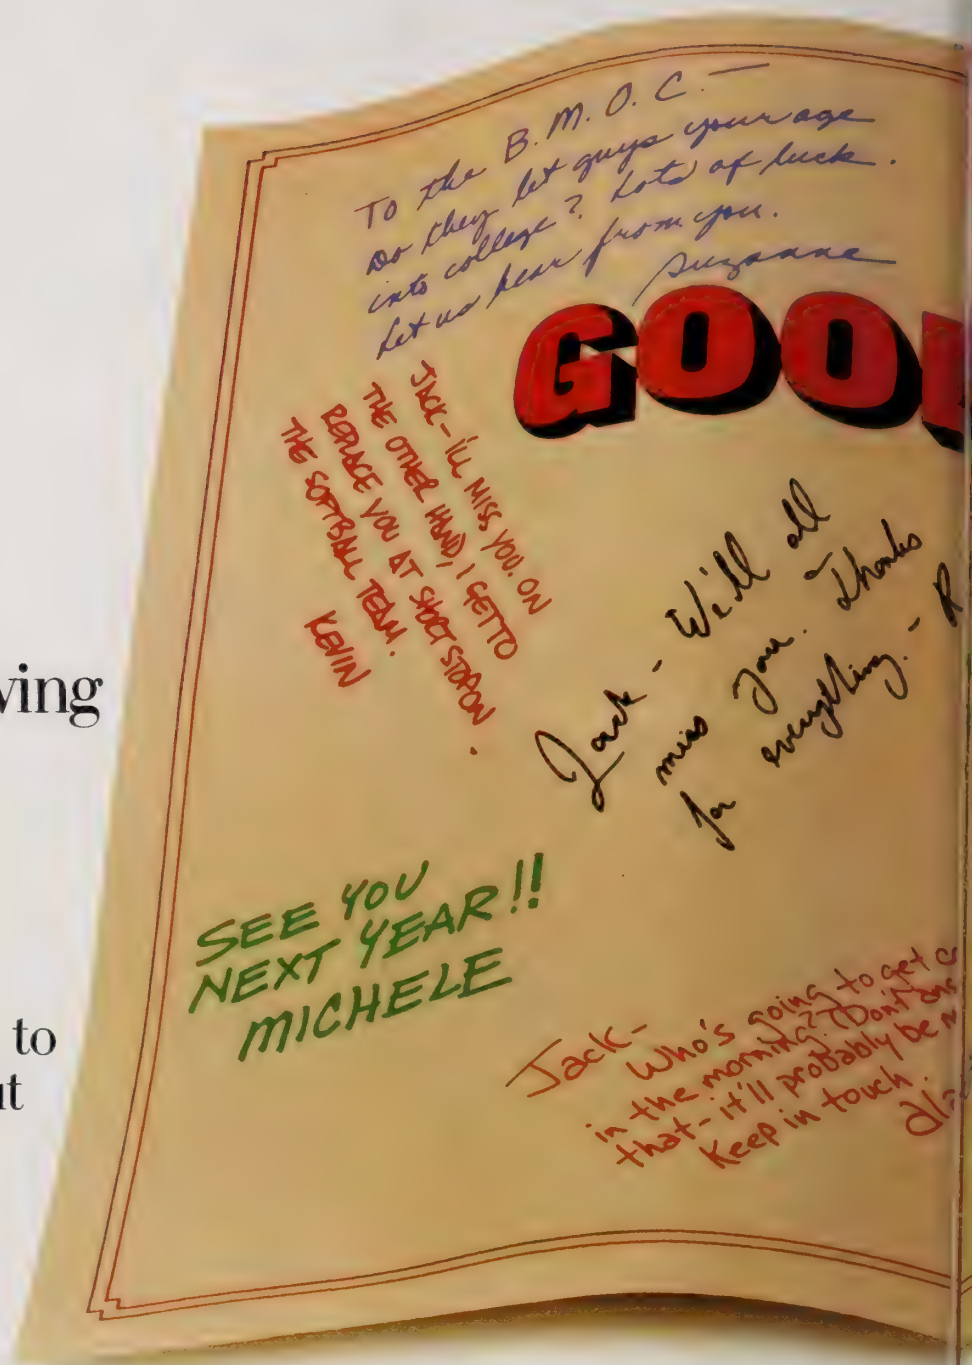 To the B.M.O.C.—
Do they let guys your age
into college? Lots of luck.
Let us hear from you.
Suzanne
GOO
JACK - I'LL MISS YOU. ON
THE OTHER HAND, I GET TO
REPLACE YOU AT SHORT STOP ON
THE SOFTBALL TEAM.
KEVIN
Jack - We'll all
miss you. Thanks
for everything. - R
ving
SEE YOU
NEXT YEAR!!
MICHELE
to
Jack-
Who's going to get
in the morning? (Don't
that - it'll probably be
Keep in touch.